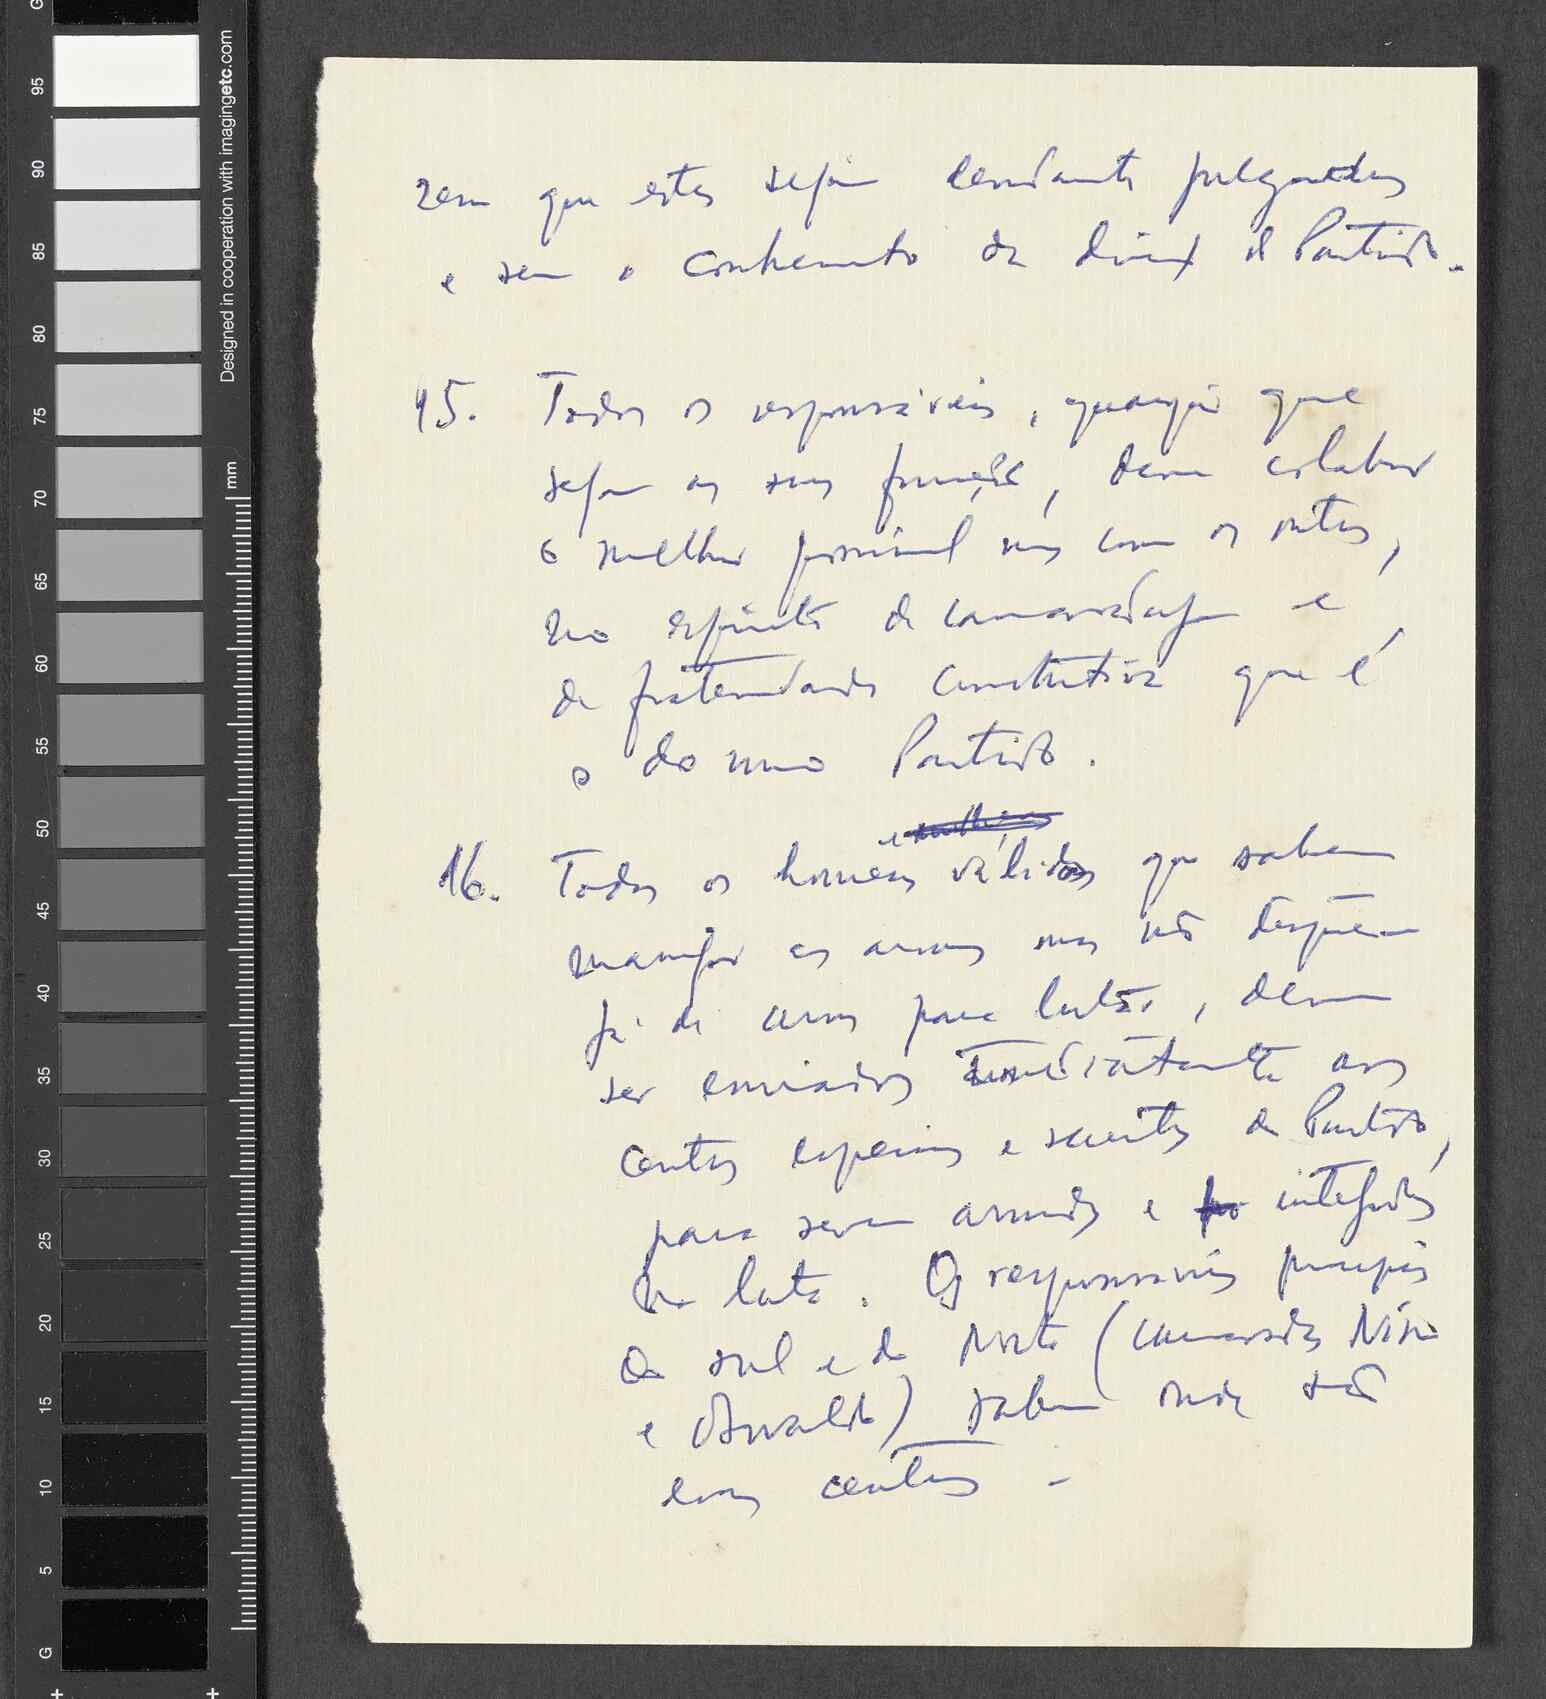 sem que estes sejam devidamente julgados
e sem o conhecimento da direcç do Partido.
15. Todos os responsáveis, quaisquer que
sejam as suas funções, devem colaborar
o melhor possível uns com os outros,
no espírito de camaradagem e
de fraternidade construtiva que é
o do nosso Partido.
e mulheres
16. Todos os homens válidos que sabem
manejar as armas mas não dispõem
já de armas para lutar, devem
ser enviados imediatamente aos
centros especiais e secretos do Partido,
para serem armados e integrados
na luta. Os responsáveis principais
do sul e do Norte (camaradas Nino
e Osvaldo) sabem onde são
esses centros.
G
95
90
85
80
75
70
65
60
55
50
45
40
35
30
25
20
15
10
5
G
Designed in cooperation with imagingetc.com
mm